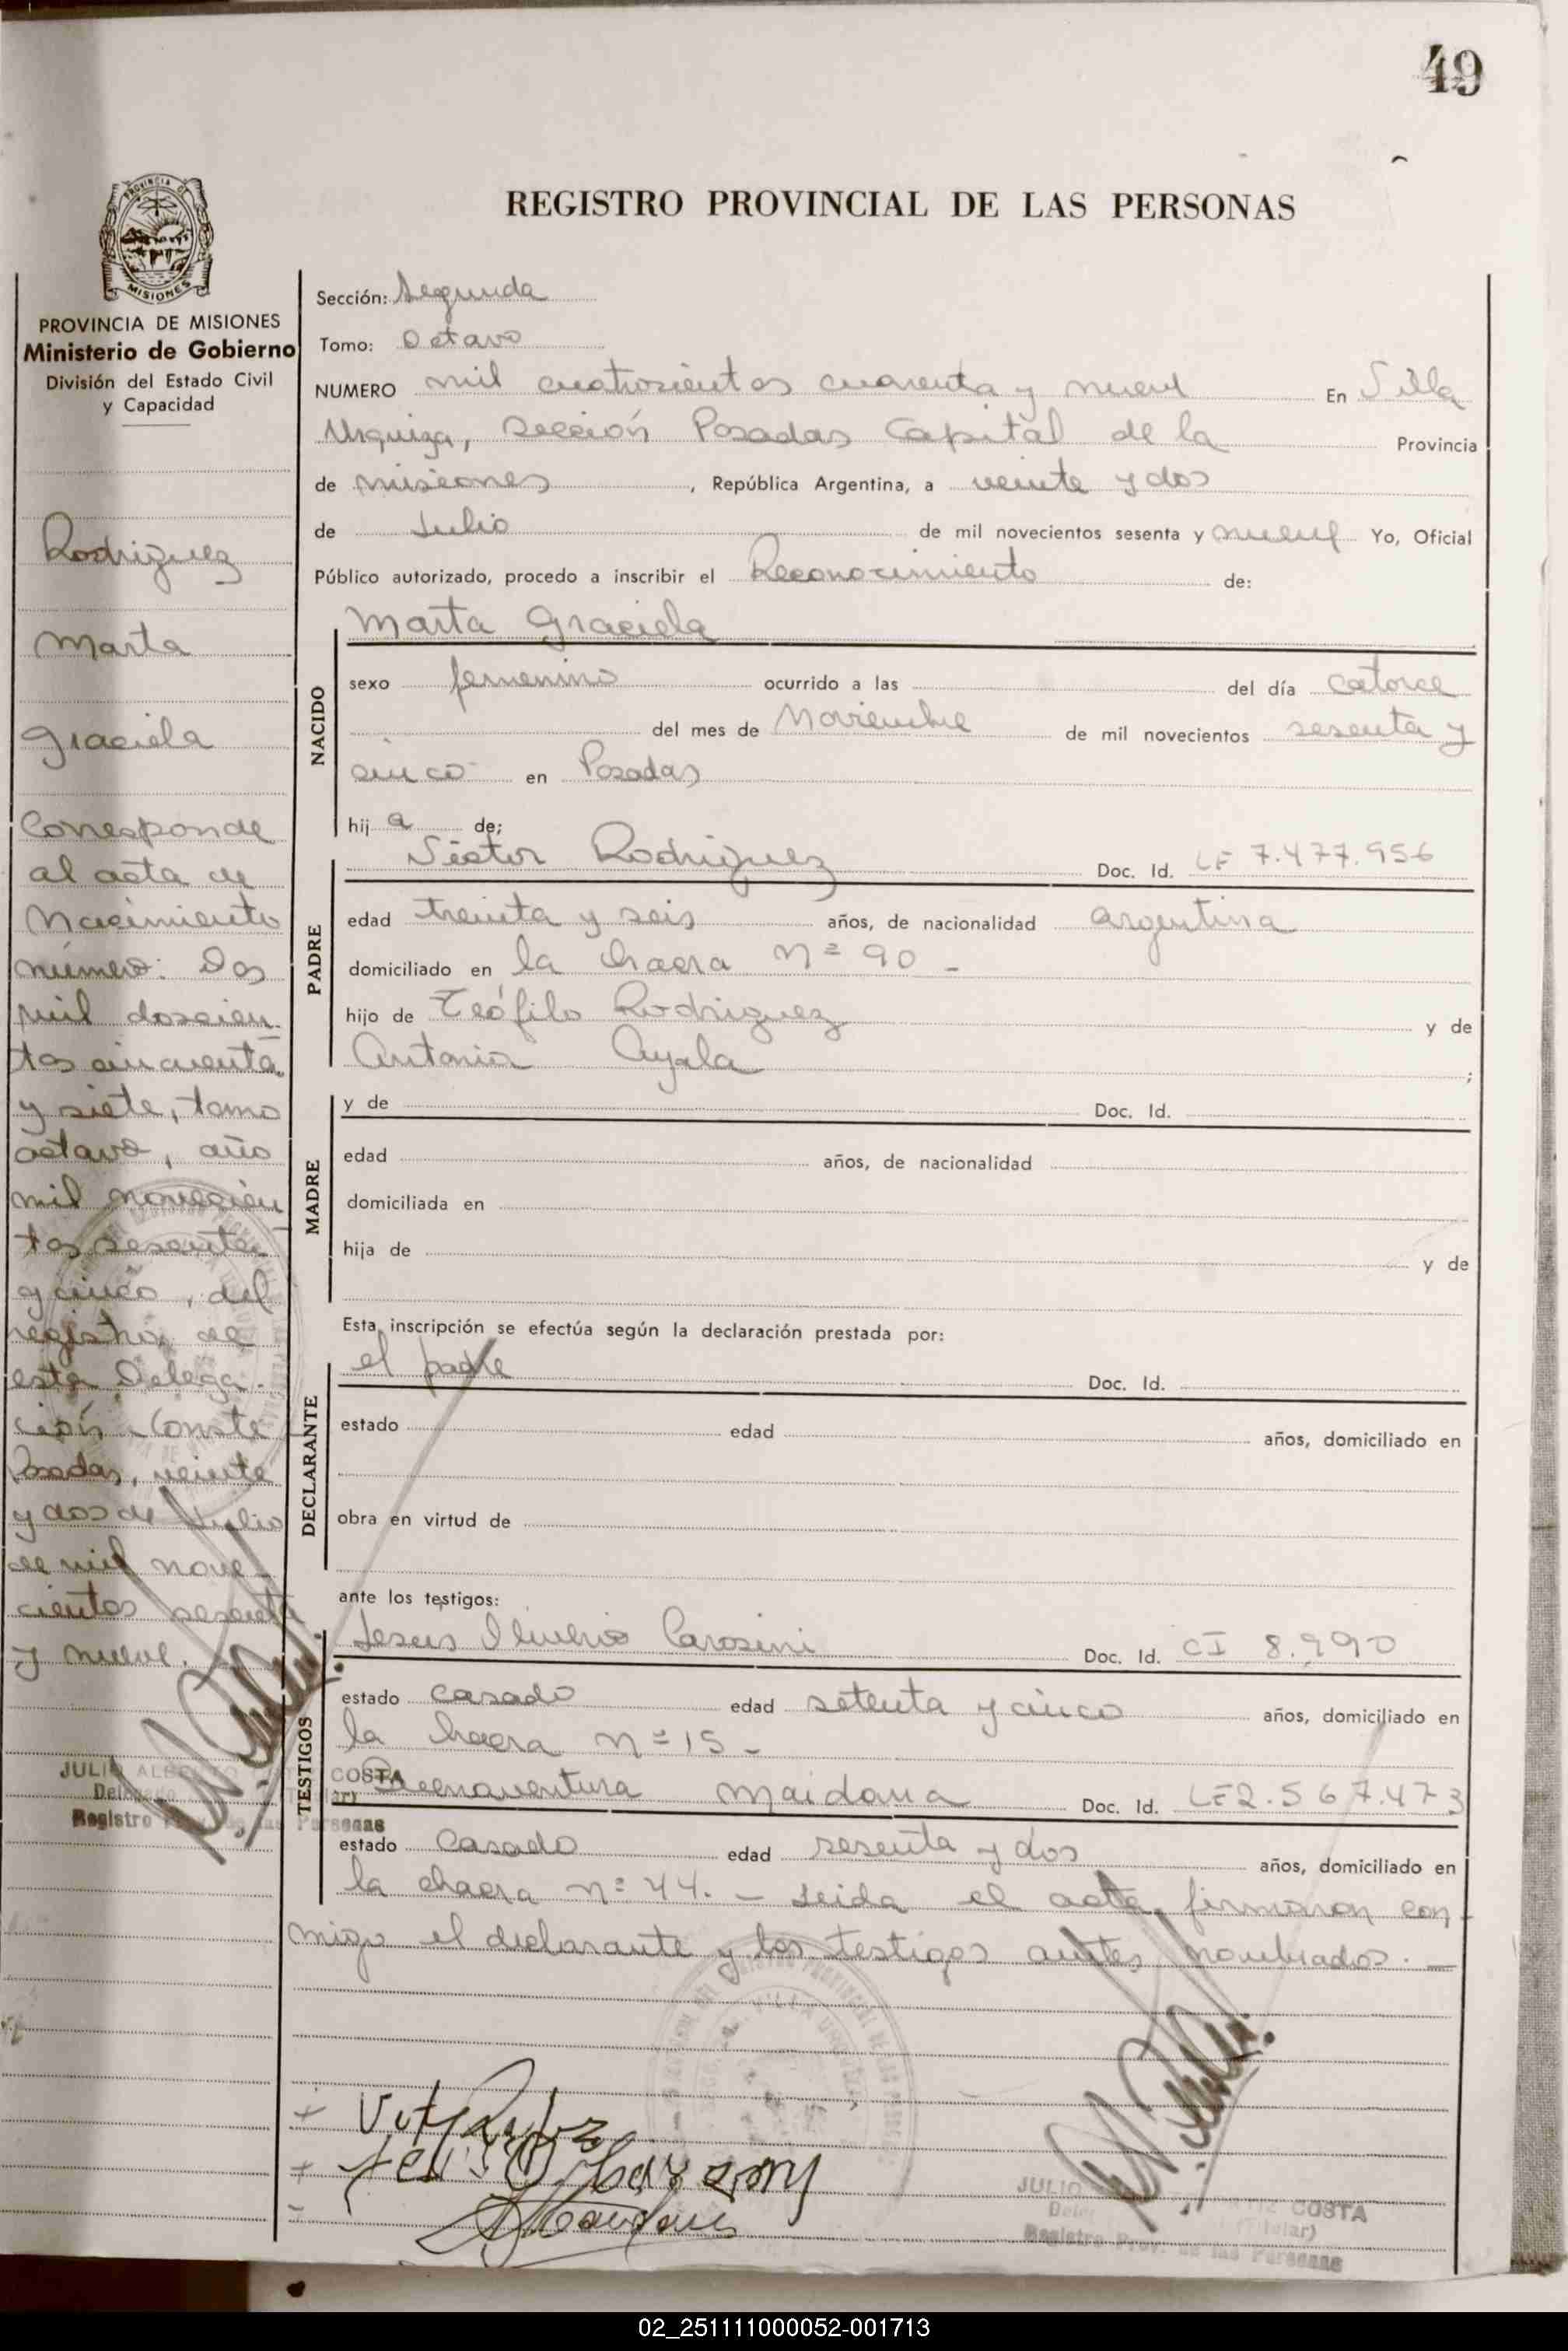 49
REGISTRO PROVINCIAL DE LAS PERSONAS
PROVINCIA DE MISIONES
Ministerio de Gobierno
División del Estado Civil
y Capacidad
Rodriguez
Marta
Graciela
Corresponde
al acta de
Nacimiento
número: Dos
mil doscien-
tos cincuenta
y siete, tomo
octavo, año
mil novecien
tos sesenta
y cinco, del
registro de
esta Delega-
ción. Conste
Posadas, veinte
y dos de Julio
de mil nove-
cientos sesenta
y nueve.
JULIO ALBERTO COSTA
Delegado
Registro Personas
Sección: Segunda
Tomo: Octavo
NUMERO mil cuatrocientos cuarenta y nueve En Villa
Urquiza, Sección Posadas Capital de la Provincia
de misiones, República Argentina, a veinte y dos
de Julio de mil novecientos sesenta y nueve Yo, Oficial
Público autorizado, procedo a inscribir el Reconocimiento de:
Marta Graciela
NACIDO
sexo femenino ocurrido a las del día catorce
del mes de Noviembre de mil novecientos sesenta y
cinco en Posadas
hij a de;
PADRE
Rodriguez Doc. Id. LE 7.477.956
edad treinta y seis años, de nacionalidad argentina
domiciliado en la chacra Nº 90 -
hijo de Teófilo Rodriguez y de
Antonia Ayala ;
MADRE
y de Doc. Id.
edad años, de nacionalidad
domiciliada en
hija de y de
Esta inscripción se efectúa según la declaración prestada por:
DECLARANTE
el padre Doc. Id.
estado edad años, domiciliado en
obra en virtud de
ante los testigos:
TESTIGOS
Jesus Carosini Doc. Id. CI 8.990
estado casado edad setenta y cinco años, domiciliado en
la chacra nº 15 -
Buenaventura Maidana Doc. Id. LE 2.567.473
estado Casado edad sesenta y dos años, domiciliado en
la chacra nº 44. - Leida el acta, firmaron con-
migo el declarante y los testigos antes nombrados. -
JULIO COSTA
(Titular)
Registro Prov. de las Personas
02_251111000052-001713